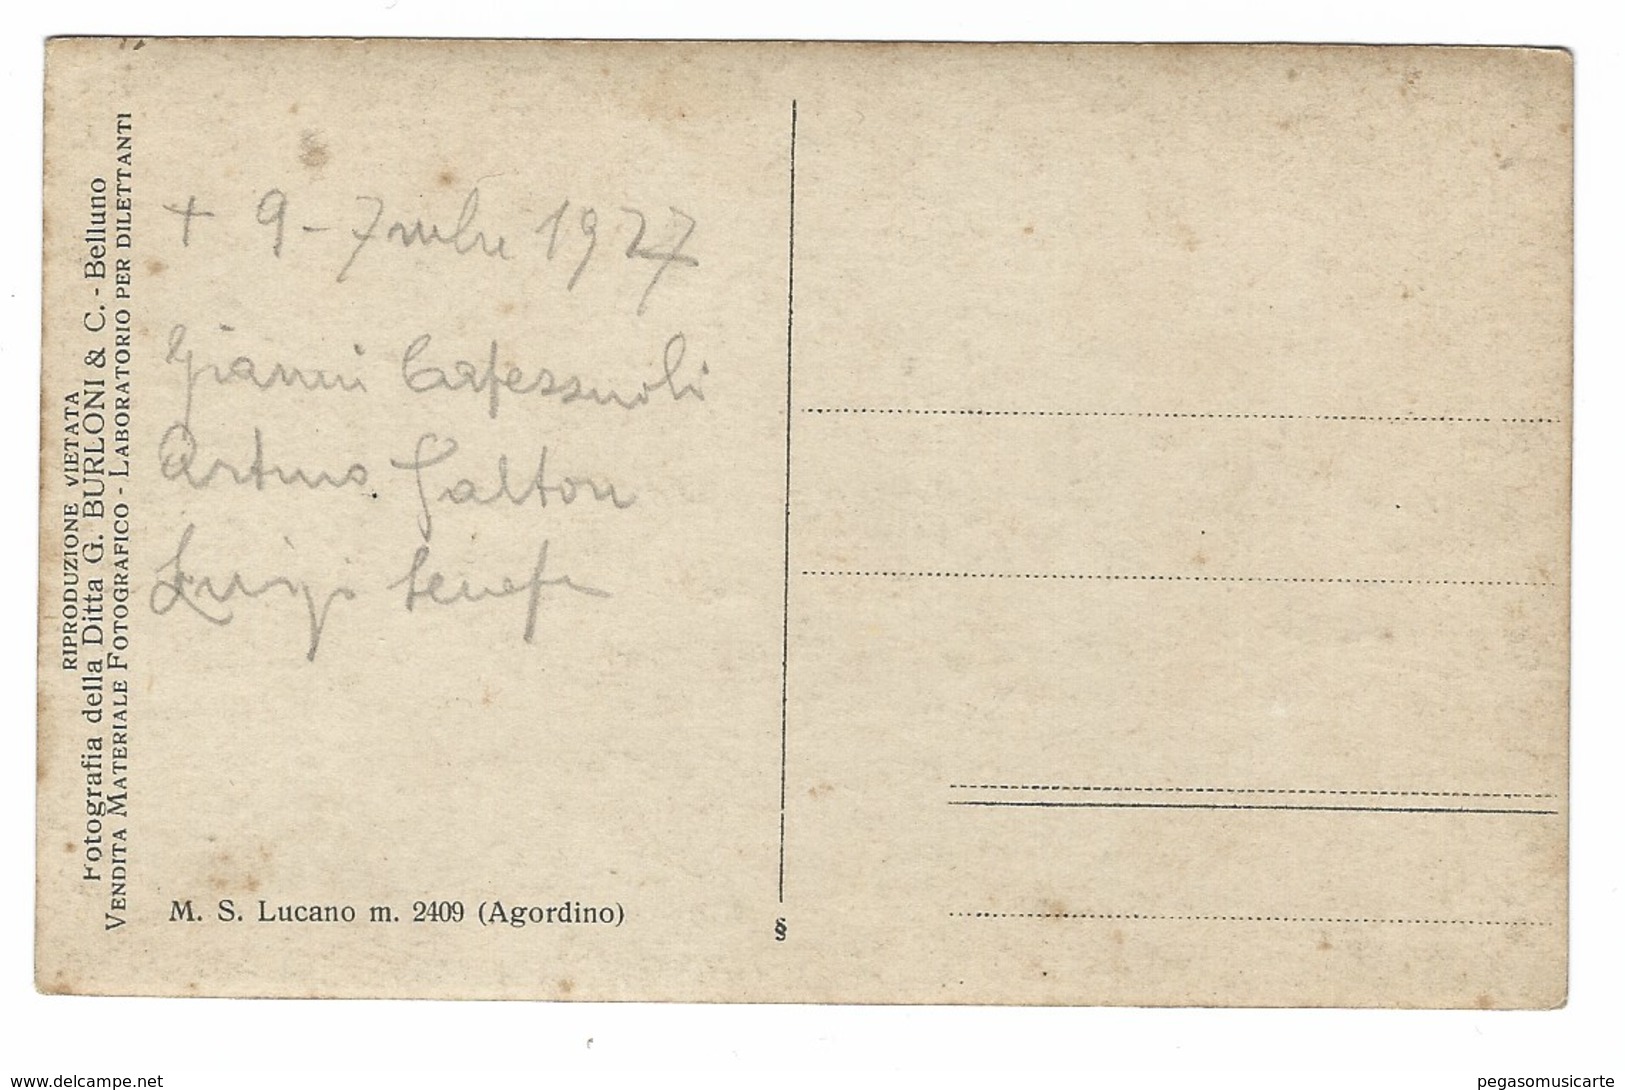 RIPRODUZIONE VIETATA
Fotografia della Ditta G. BURLONI & C. - Belluno
VENDITA MATERIALE FOTOGRAFICO - LABORATORIO PER DILETTANTI
+ 9 - 7mbre 1927
Gianni
Arturo
Luigi
M. S. Lucano m. 2409 (Agordino)
§
www.delcampe.net
pegasomusicarte